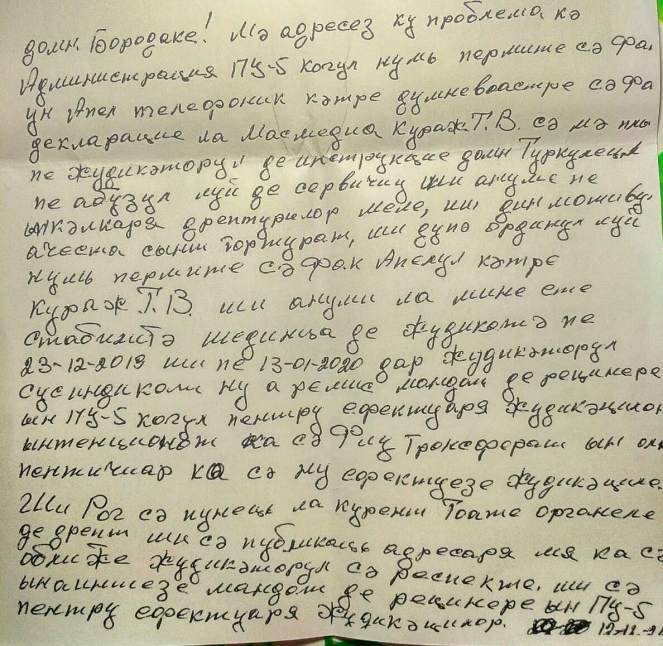 домн. Бородаке! Мэ адресез ку проблема. кэ
Администрация ПУ-5 когул нумь пермите сэ фак
ун Апел телефоник кэтре думневоастре сэ фа
декларацие ла Масмедиа Кураж Т.В. сэ мэ плы
пе жудикэторул де инструкцие домн Туркулець
пе абузул луй де сервичиу ши ануме пе
ынкэлкаря дрептурилор меле, ши дин мотиву
ачеста сынт тортурат, ши дупэ ординул луй
нумь пермите сэ фак Апелул кэтре
Кураж Т.В. ши ануми ла мине есте
стабилитэ шединца де жудикатэ пе
23-12-2019 ши пе 13-01-2020 дар жудикэторул
сусиндикат ну а ремис мандат де рецинере
ын ПУ-5 когул пентру ефектуаря жудикэцилон
ынтенционат ка сэ фиу Трансферат ын
пентичиар ка сэ ну ефектуезе жудикэциле.
Ши Рог сэ пунець ла курент Тоате органеле
де дрепт ши сэ публикаць адресаря мя ка сэ
оближе жудикэторул сэ респекте. ши сэ
ынаинтезе мандат де рецинере ын ПУ-5
пентру ефектуаря жудикэцилор. 12.12.